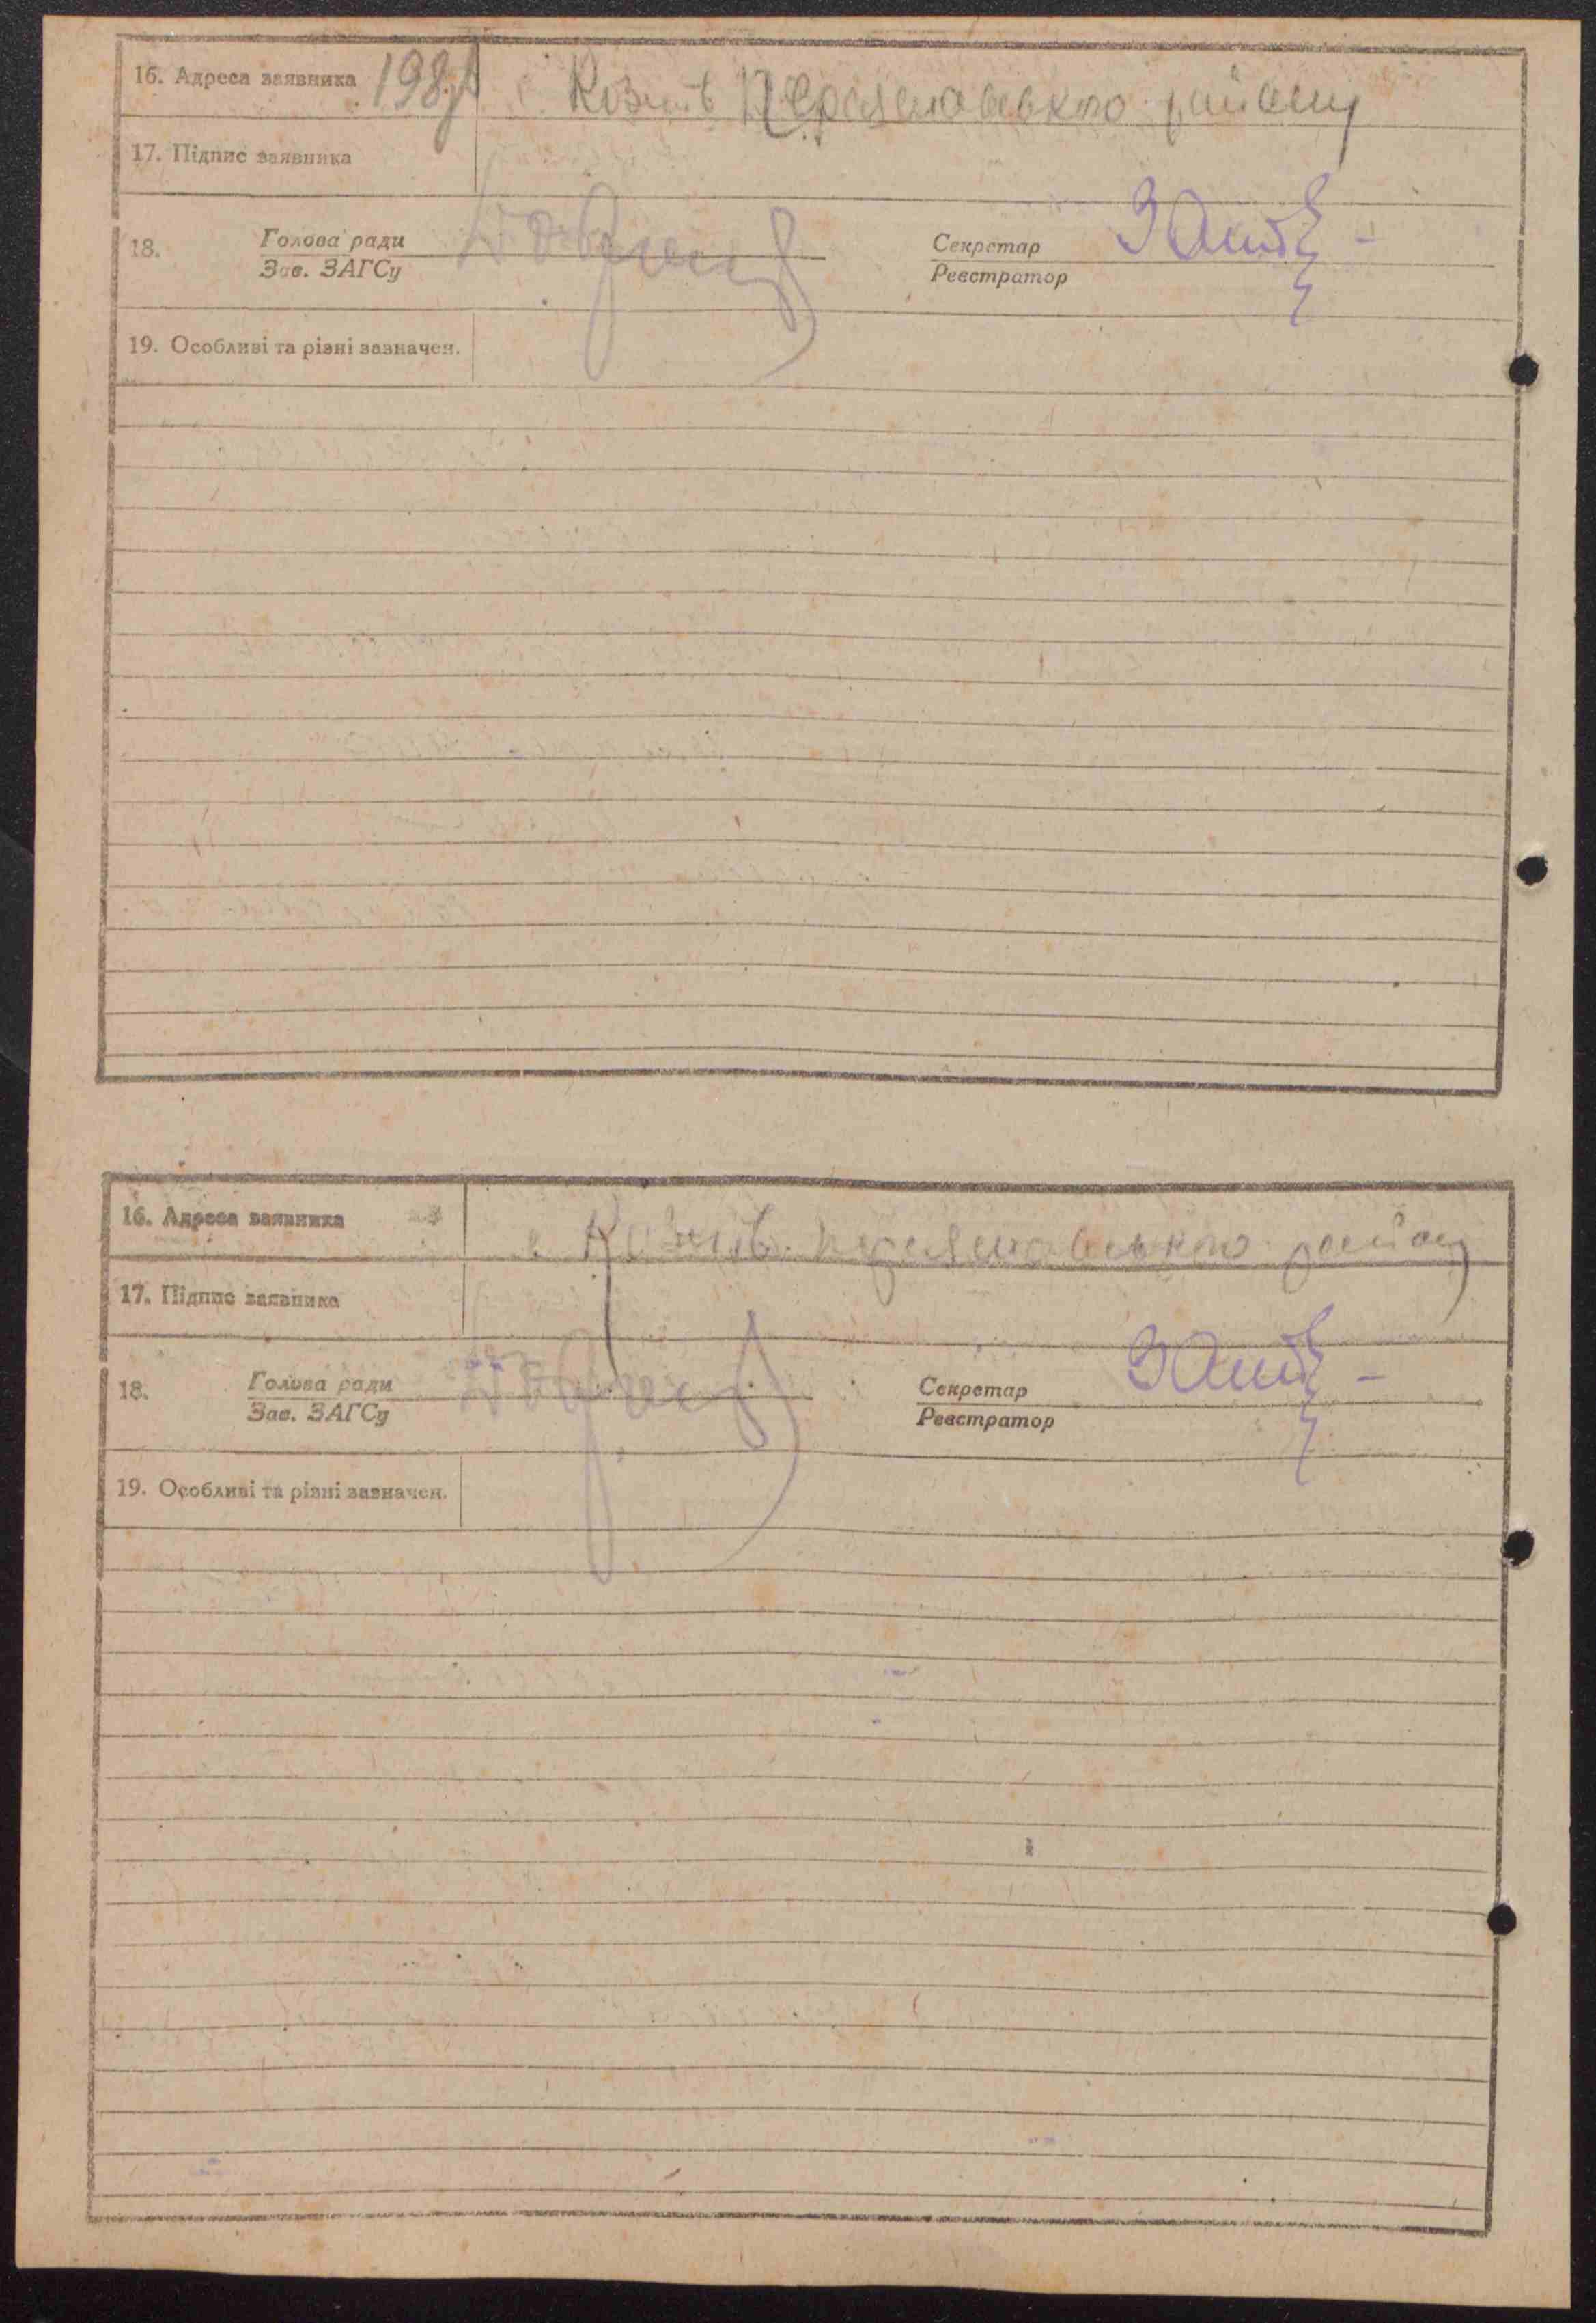 16. Адреса заявника 198 Козлів Переяславського району
17. Підпис заявника
18. Голова ради Секретар
Зав. ЗАГСу Реєстратор
19. Особливі та різні зазначен.
16. Адреса заявника с Козлів Переяславського району
17. Підпис заявника
18. Голова ради Секретар
Зав. ЗАГСу Реєстратор
19. Особливі та різні зазначен.